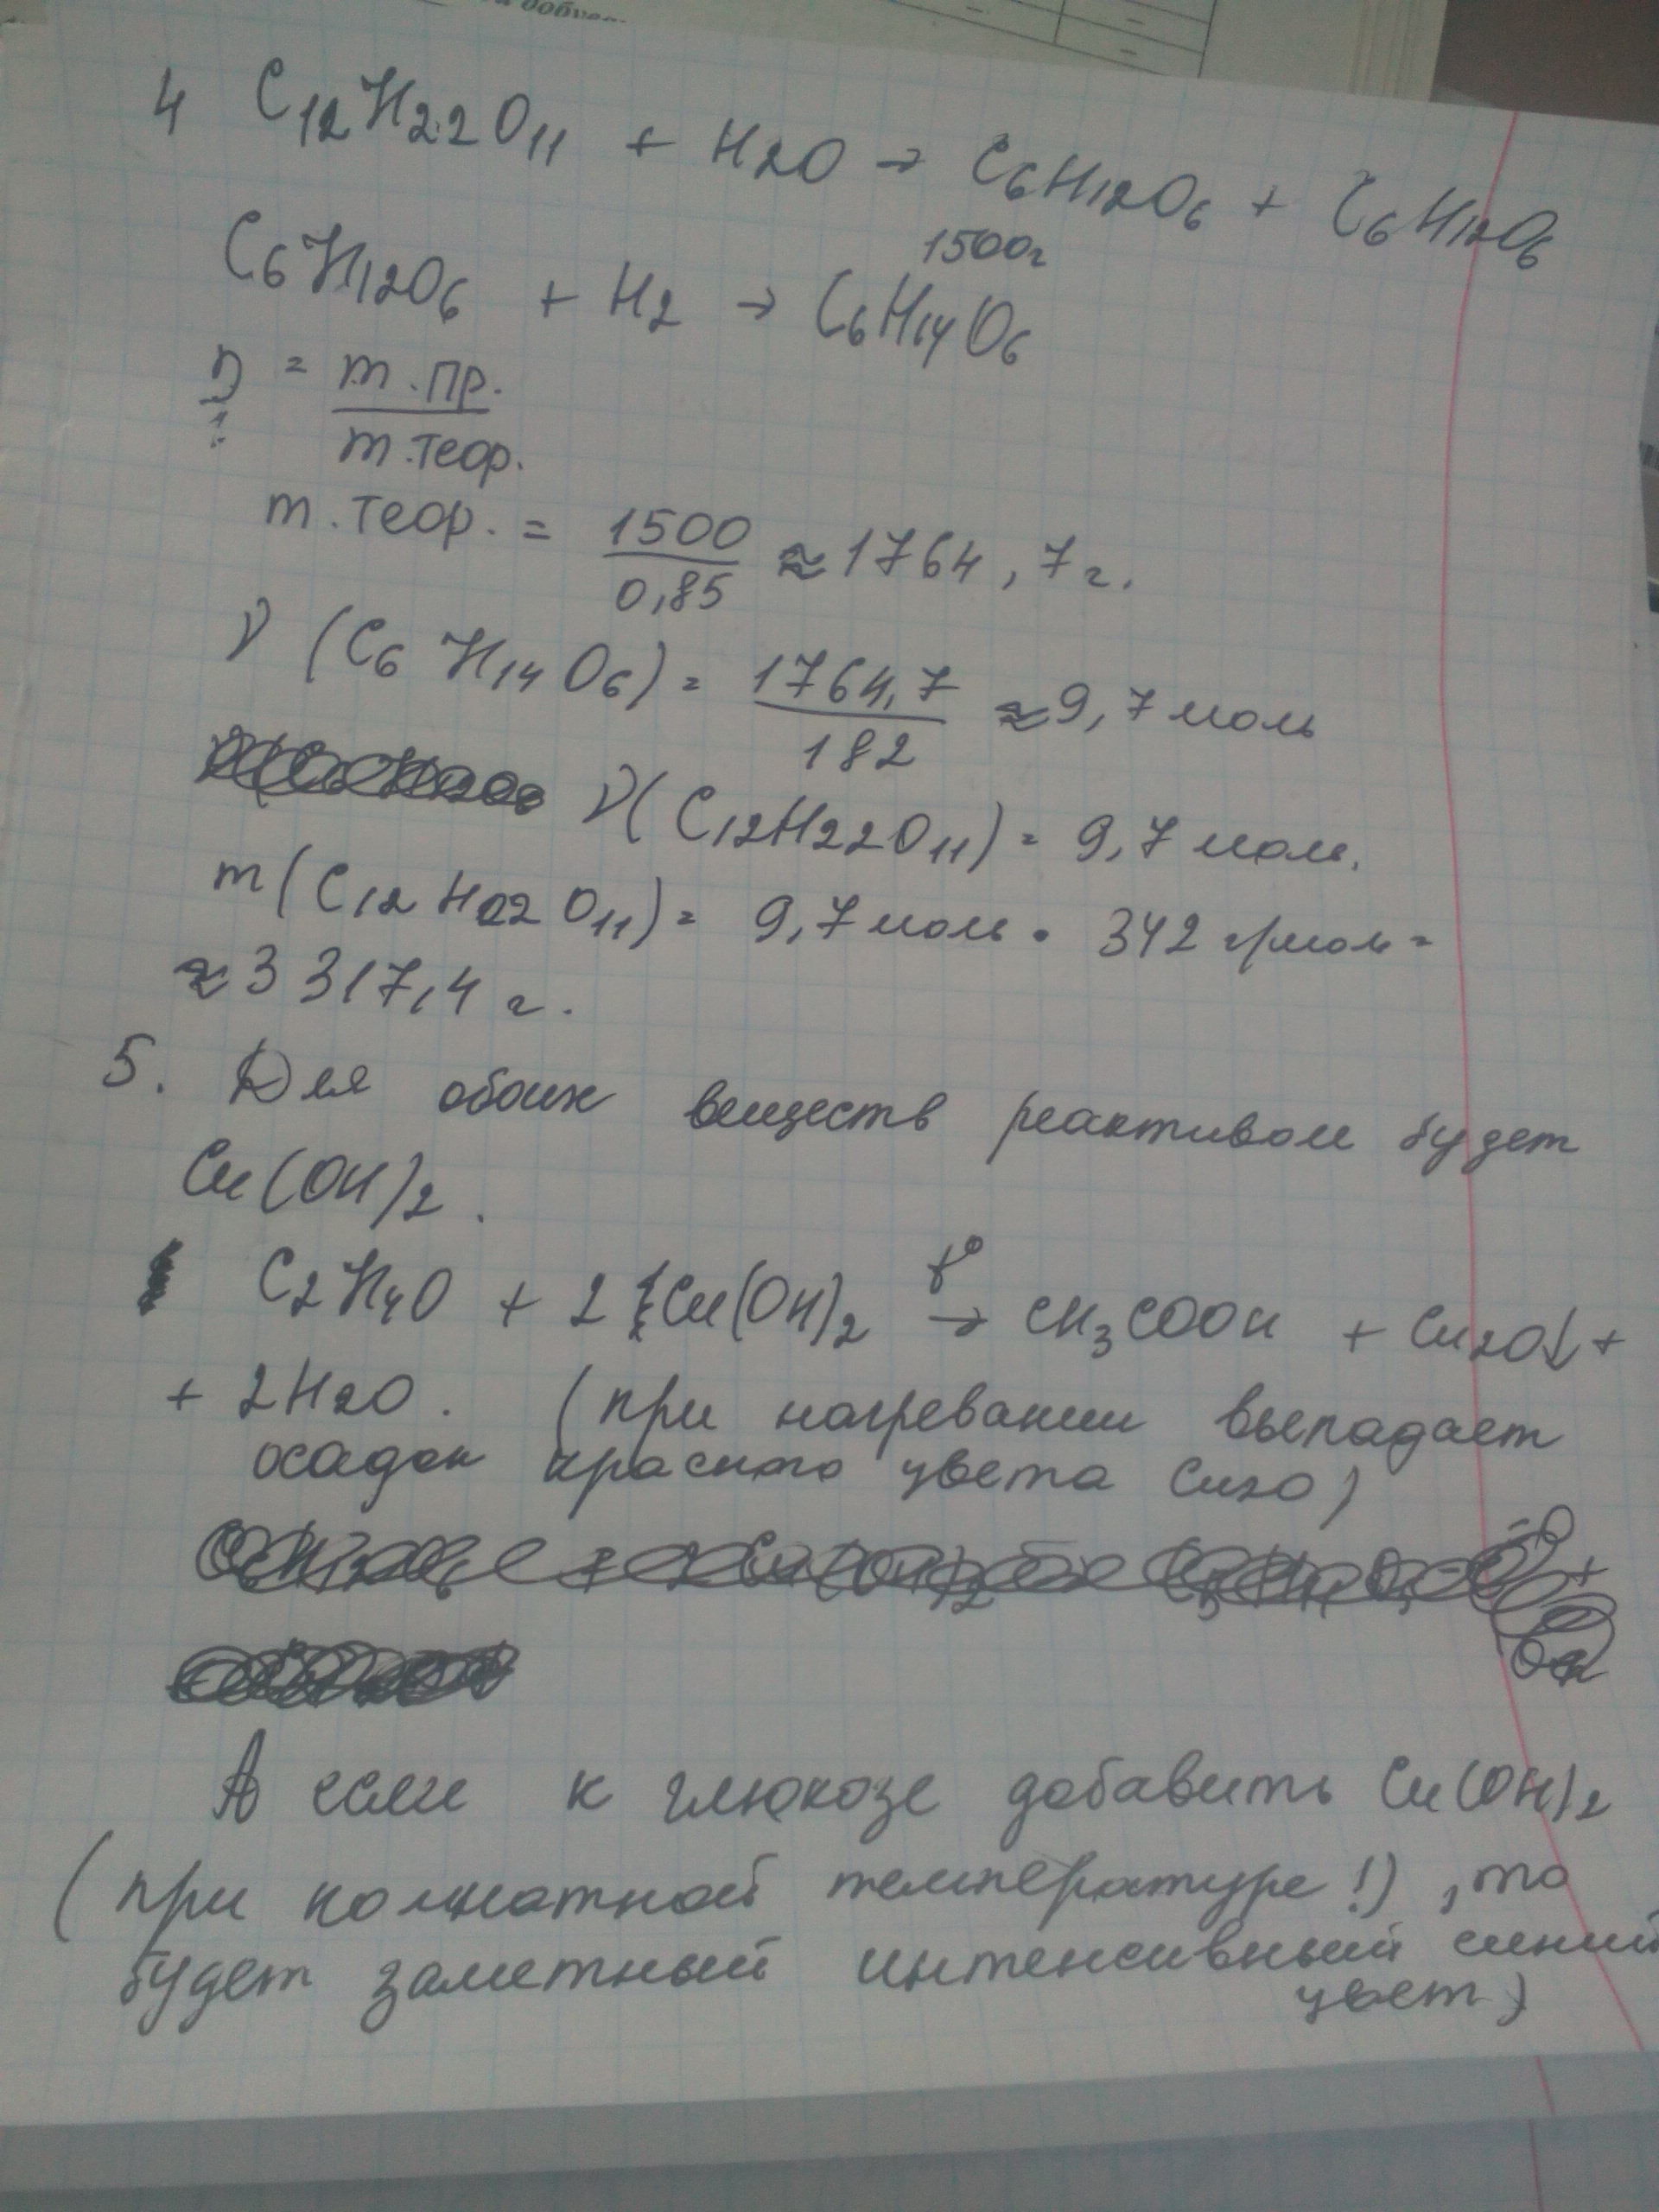 4 C12H22O11 + H2O → C6H12O6 + C6H12O6
1500г
C6H12O6 + H2 → C6H14O6
η = m.пр.
m.теор.
m.теор. = 1500 ≈ 1764,7г.
0,85
ν (C6H14O6) = 1764,7 ≈ 9,7 моль
182
ν(C12H22O11) = 9,7 моль.
m(C12H22O11) = 9,7 моль · 342 г/моль =
≈ 3317,4 г.
5. Для обоих веществ реактивом будет
Cu(OH)2.
C2H4O + 2 Cu(OH)2 t° → CH3COOH + Cu2O↓ +
+ 2H2O. (при нагревании выпадает
осадок красного цвета Cu2O)
А если к глюкозе добавить Cu(OH)2
(при комнатной температуре!), то
будет заметный интенсивный синий
цвет)